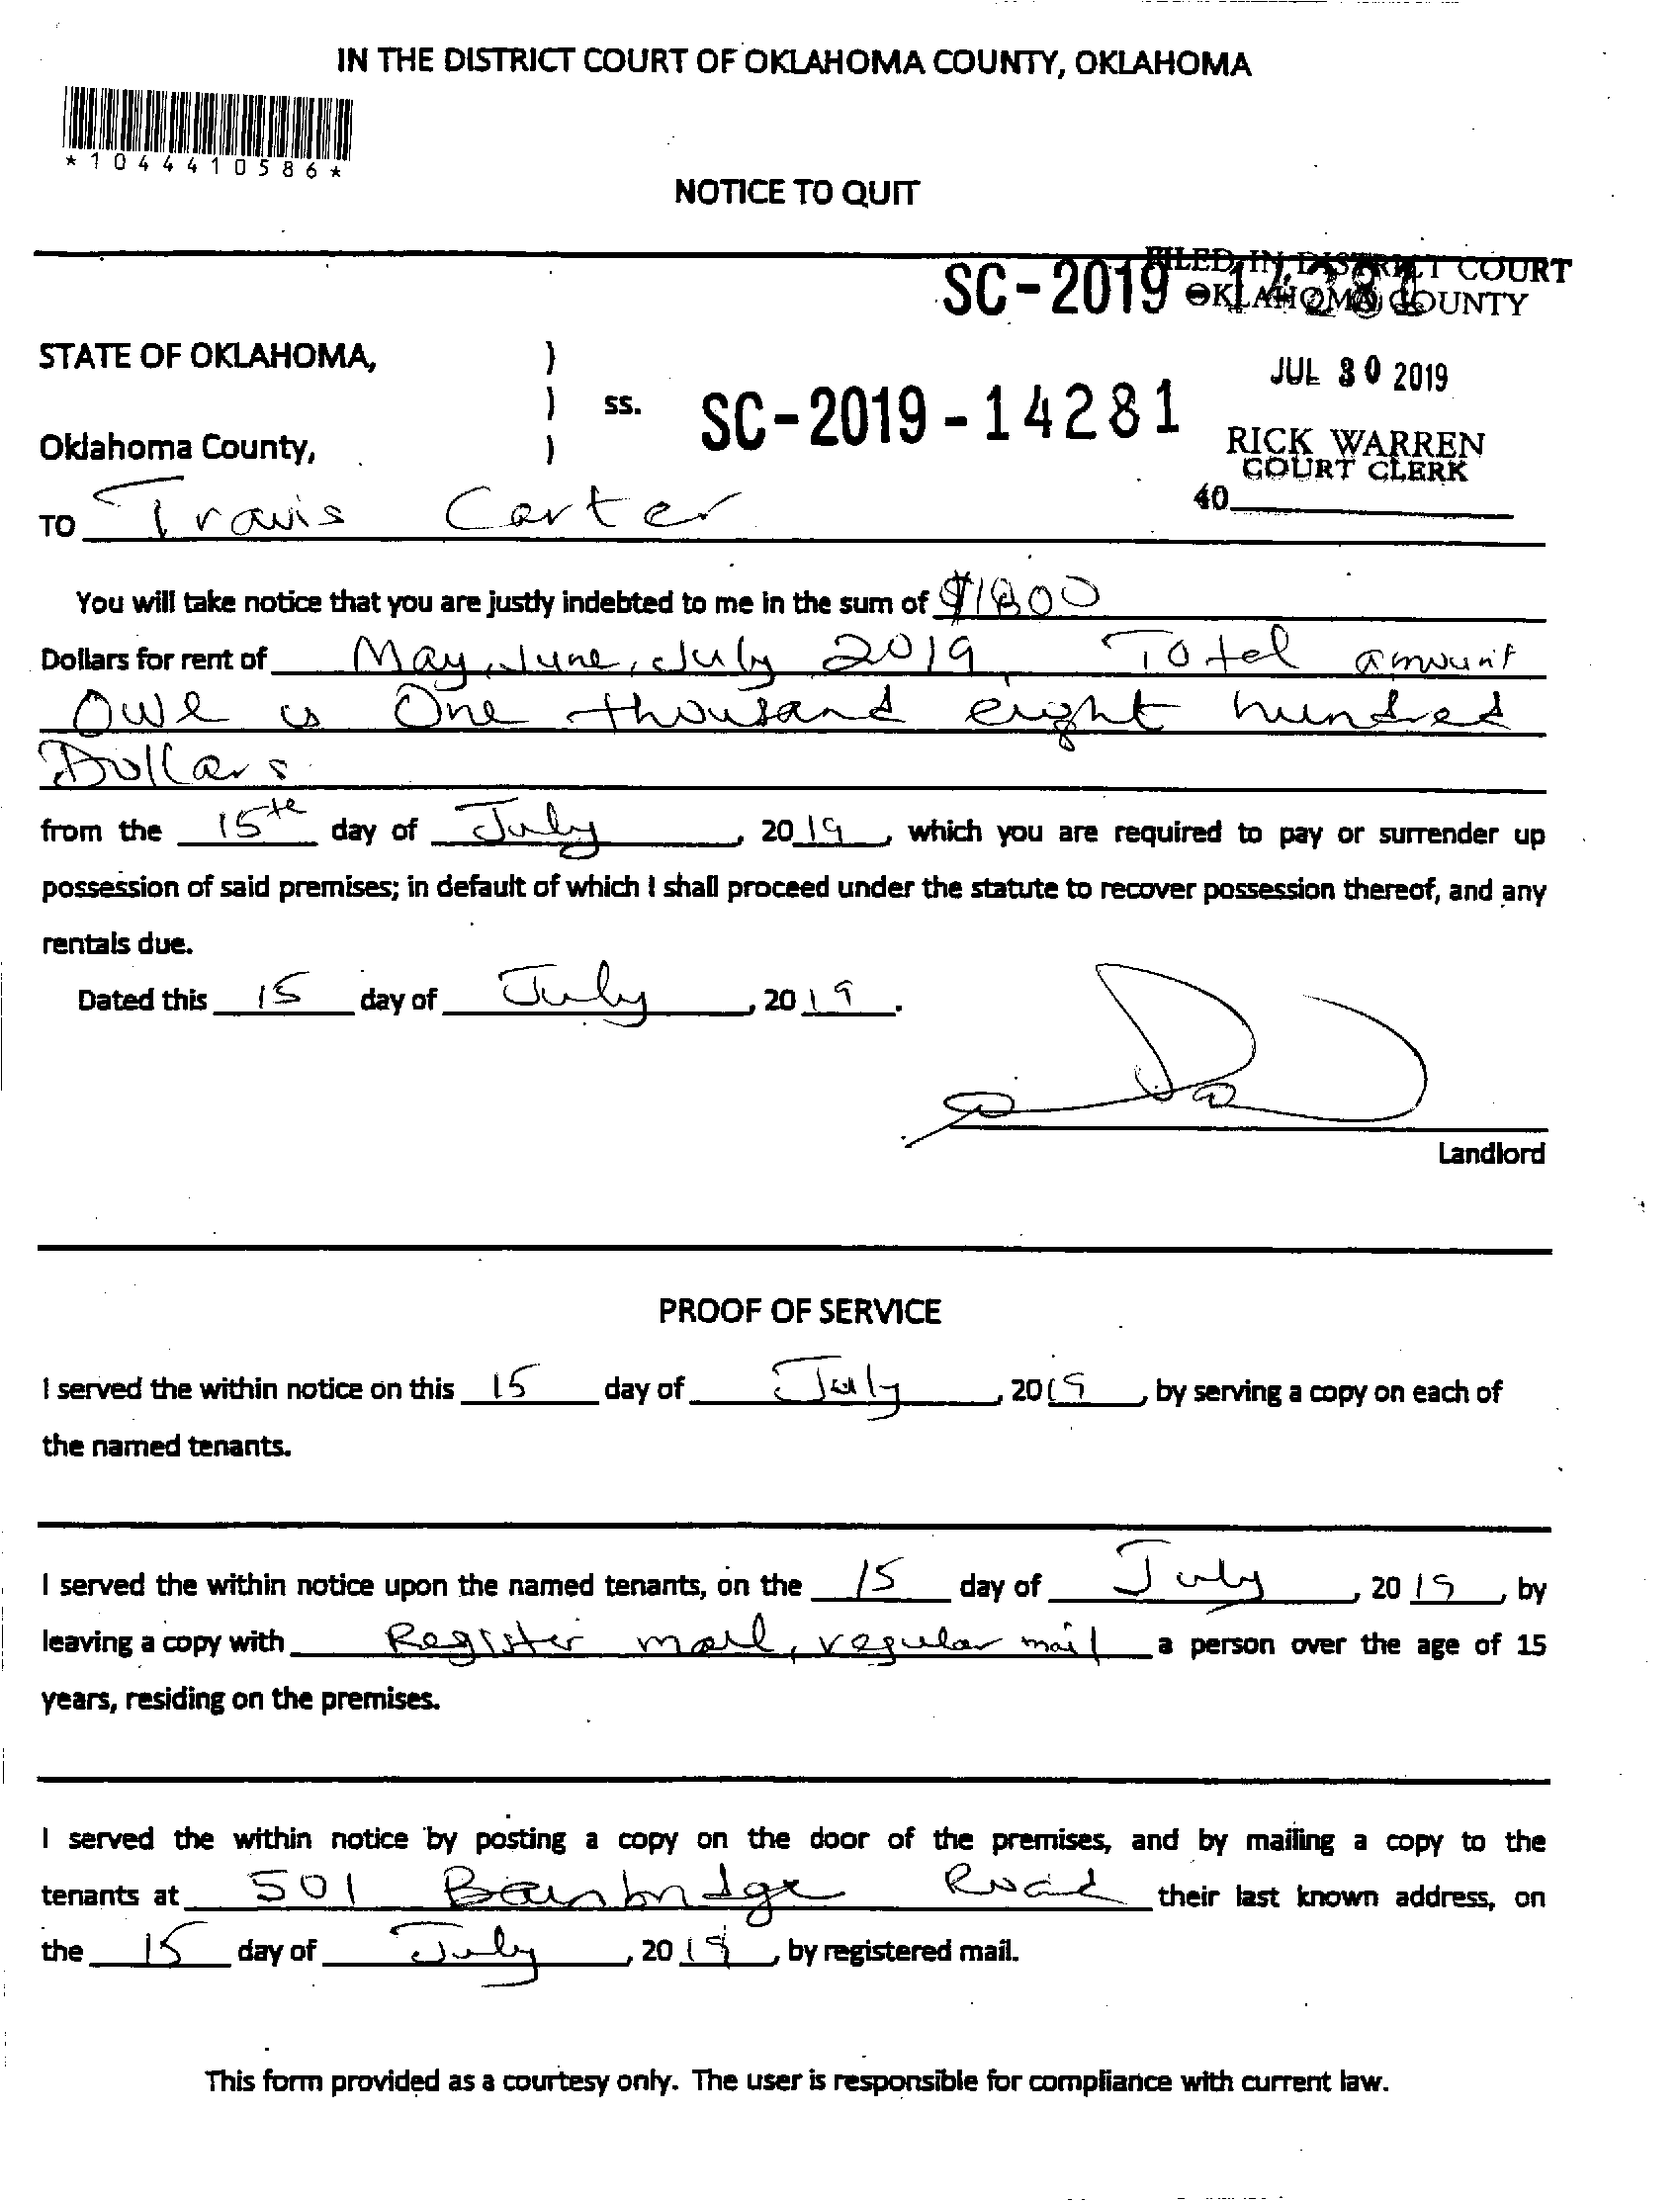 IN THE DISTRICT COURT OF OKLAHOMA COUNTY, OKLAHOMA
*1044410586*
NOTICE TO QUIT
FILED IN DISTRICT COURT
OKLAHOMA COUNTY
SC-2019-14281
STATE OF OKLAHOMA, )
JUL 30 2019
) ss. SC-2019-14281
Oklahoma County, )
RICK WARREN
COURT CLERK
40
TO Travis Carter
You will take notice that you are justly indebted to me in the sum of $1800
Dollars for rent of May, June, July 2019 Total amount
Owe is One thousand eight hundred
Dollars
from the 15th day of July, 2019, which you are required to pay or surrender up
possession of said premises; in default of which I shall proceed under the statute to recover possession thereof, and any
rentals due.
Dated this 15 day of July, 2019.
Landlord
PROOF OF SERVICE
I served the within notice on this 15 day of July, 2019, by serving a copy on each of
the named tenants.
I served the within notice upon the named tenants, on the 15 day of July, 2019, by
leaving a copy with Register mail, regular mail a person over the age of 15
years, residing on the premises.
I served the within notice by posting a copy on the door of the premises, and by mailing a copy to the
tenants at 501 Bainbridge Road their last known address, on
the 15 day of July, 2019, by registered mail.
This form provided as a courtesy only. The user is responsible for compliance with current law.